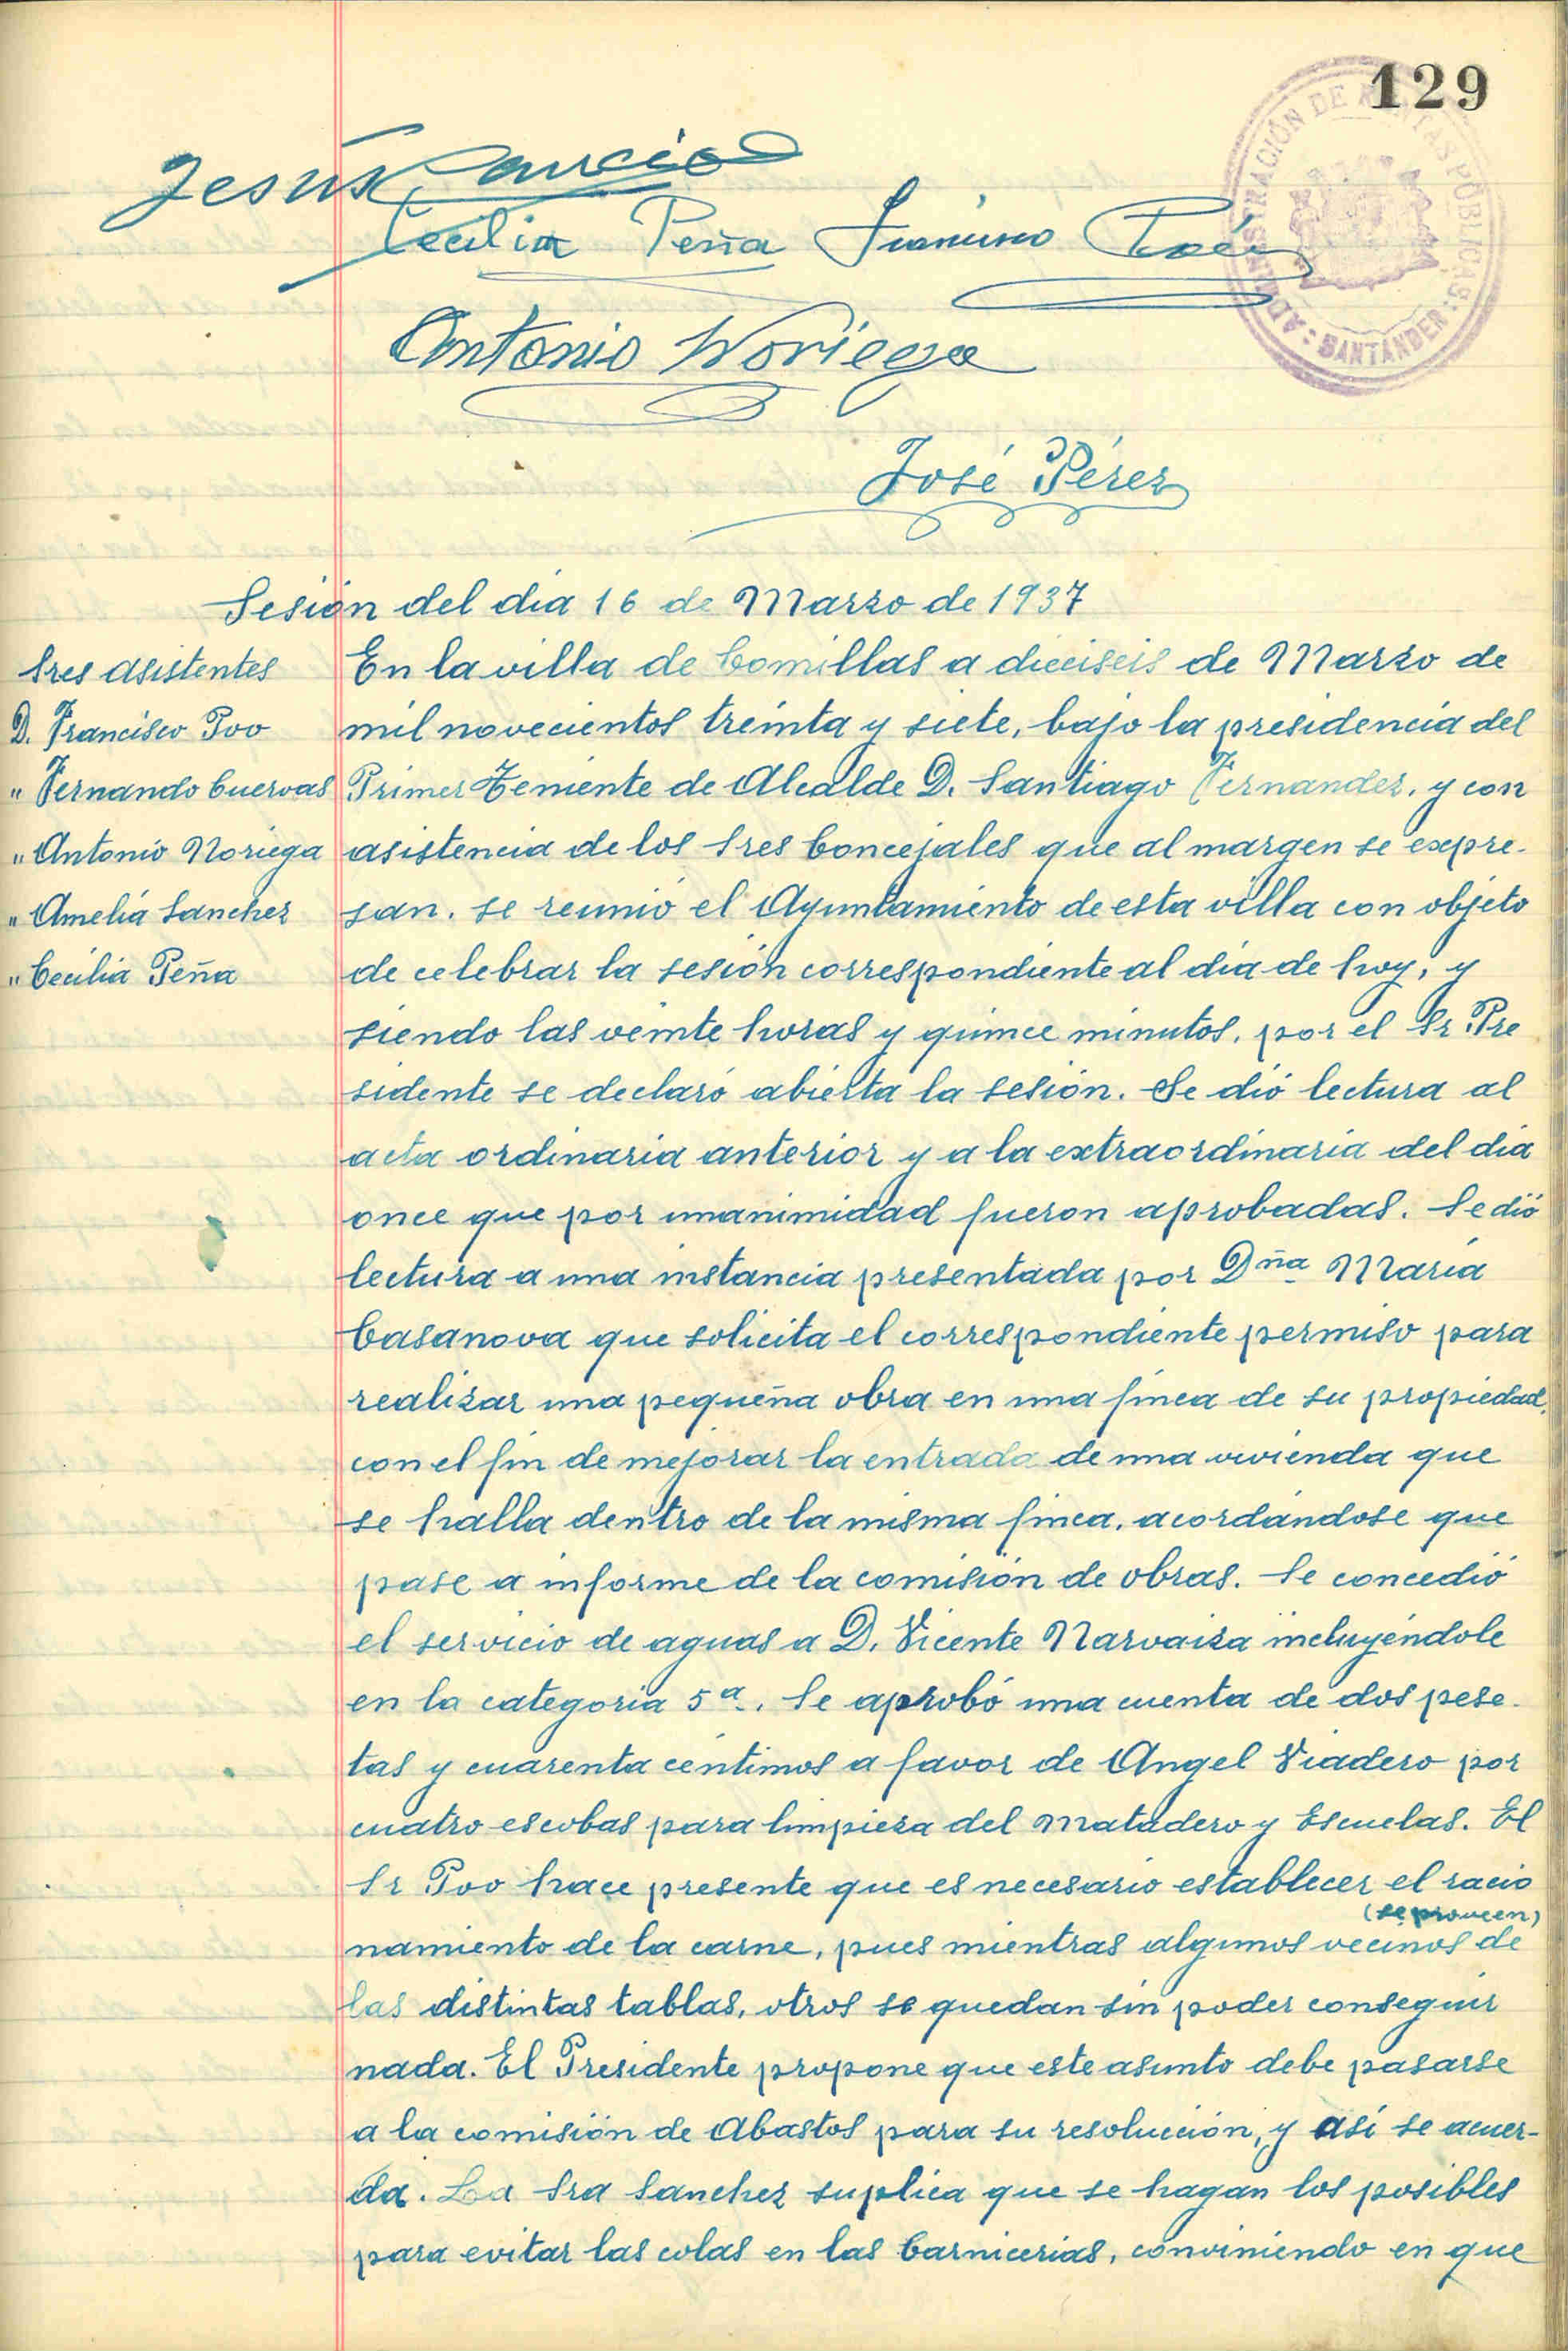 129
ADMINISTRACIÓN DE RENTAS PÚBLICAS
SANTANDER
Jesús García
Cecilia Peña Francisco
Antonio Noriega
José Pérez
Sesión del día 16 de Marzo de 1937
Sres asistentes
D. Francisco Poo
" Fernando Cuervas
" Antonio Noriega
" Amelia Sanchez
" Cecilia Peña
En la villa de Comillas a dieciseis de Marzo de
mil novecientos treinta y siete, bajo la presidencia del
Primer Teniente de Alcalde D. Santiago Fernandez, y con
asistencia de los Sres Concejales que al margen se expre-
san, se reunió el Ayuntamiento de esta villa con objeto
de celebrar la sesión correspondiente al día de hoy, y
siendo las veinte horas y quince minutos, por el Sr. Pre
sidente se declaró abierta la sesión. Se dió lectura al
acta ordinaria anterior y a la extraordinaria del día
once que por unanimidad fueron aprobadas. Se dió
lectura a una instancia presentada por Dña María
Casanova que solicita el correspondiente permiso para
realizar una pequeña obra en una finca de su propiedad,
con el fin de mejorar la entrada de una vivienda que
se halla dentro de la misma finca, acordándose que
pase a informe de la comisión de obras. Se concedió
el servicio de aguas a D. Vicente Narvaiza incluyéndole
en la categoría 5ª. Se aprobó una cuenta de dos pese-
tas y cuarenta centimos a favor de Angel Viadero por
cuatro escobas para limpieza del Matadero y Escuelas. El
Sr Poo hace presente que es necesario establecer el racio
(se proveen)
namiento de la carne, pues mientras algunos vecinos de
las distintas tablas, otros se quedan sin poder conseguir
nada. El Presidente propone que este asunto debe pasarse
a la comisión de Abastos para su resolución, y así se acuer-
da. La Sra Sanchez suplica que se hagan los posibles
para evitar las colas en las Carnicerias, conviniendo en que